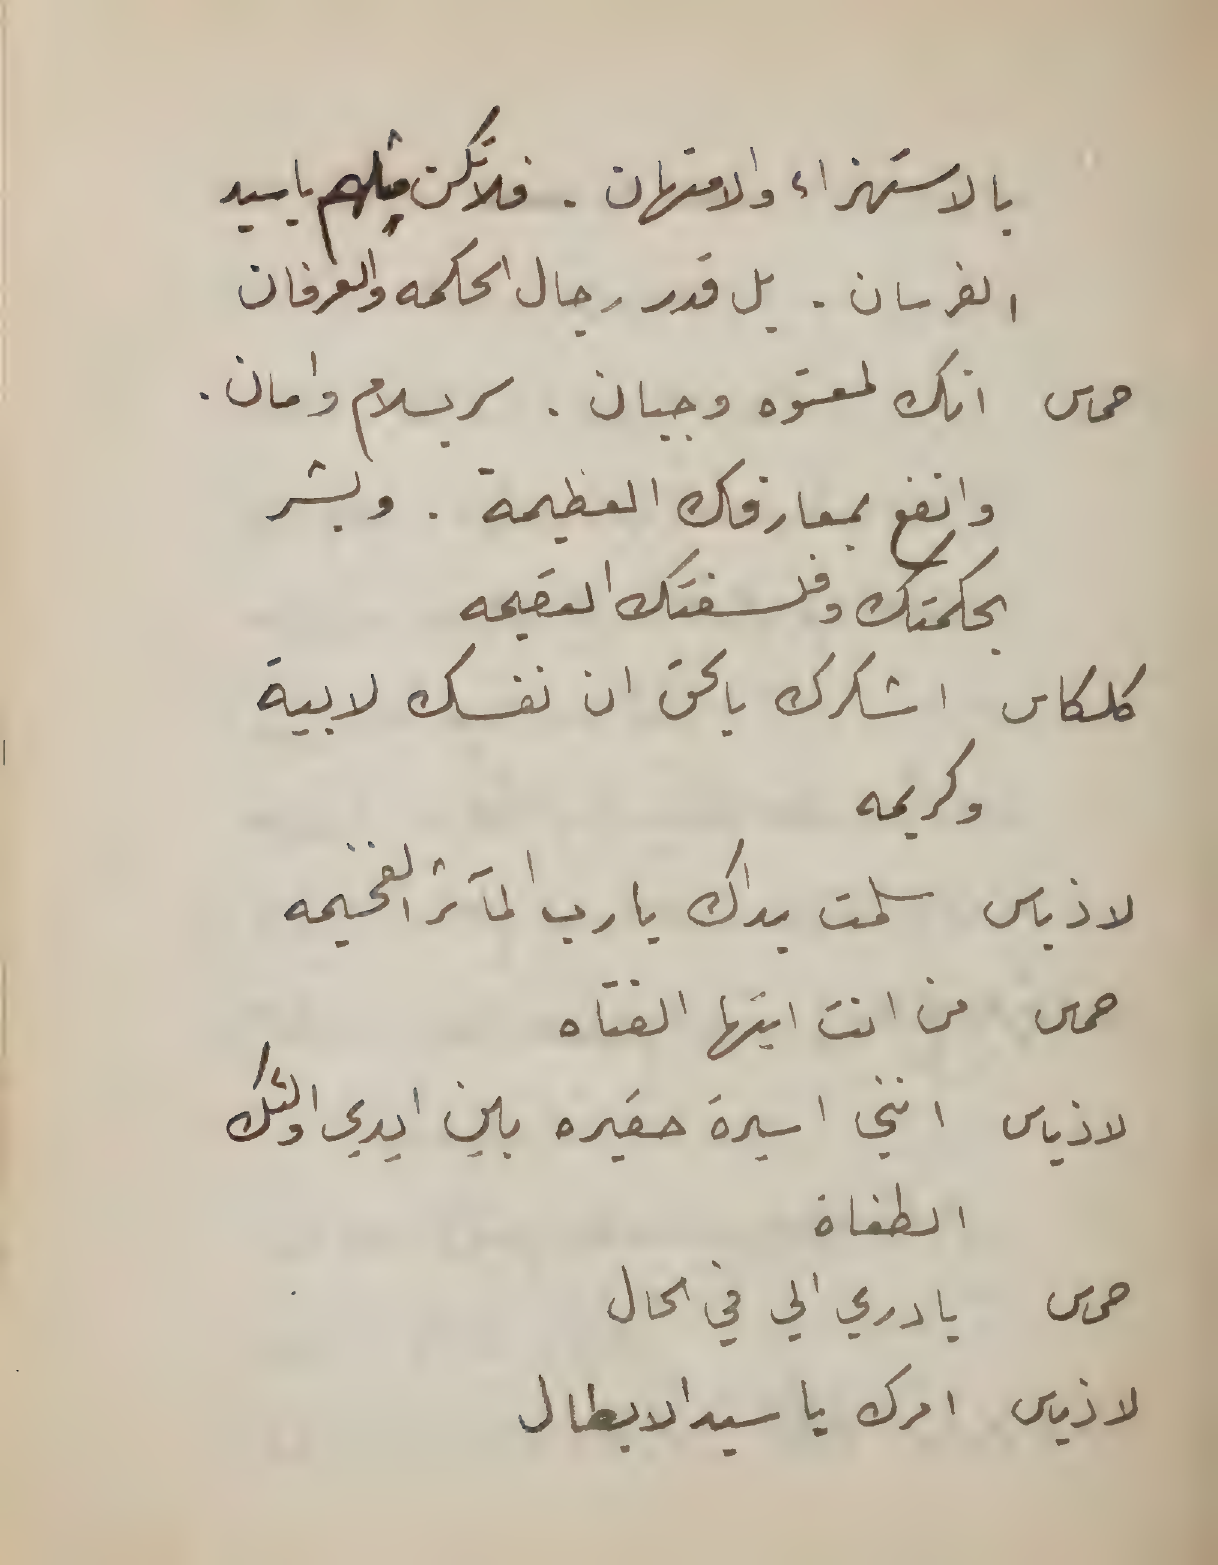 بالاستهزاء والامتهان . فلا تكن مثلهم يا سيد
الفرسان . بل قدر رجال الحكمه والعرفان
حماس انك لمعتوه وجبان . سر بسلام وامان .
وانفع بمعارفك العظيمة . وبشر
بحكمتك وفلسفتك العقيمه
كلكاس اشكرك بالحق ان نفسك لابية
وكريمه
لاذياس سلمت يداك يا رب المآثر الفخيمه
حماس من انت ايتها الفتاه
لاذياس انني اسيرة حقيره بين ايدي اولئك
الطغاة
حماس بادري الي في الحال
لاذياس امرك يا سيد الابطال